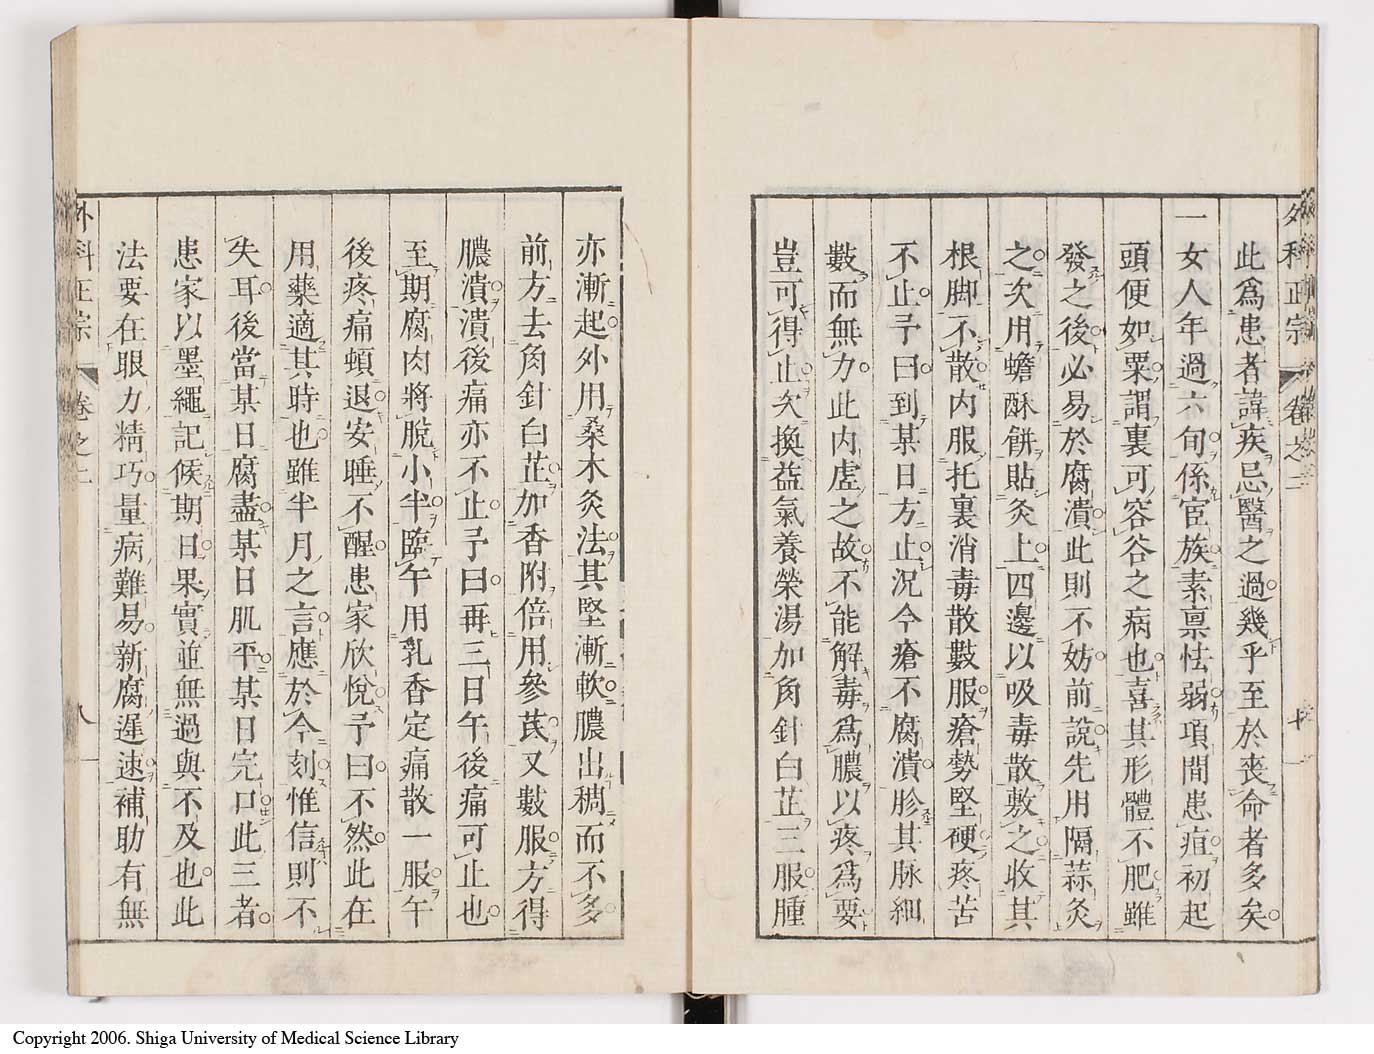 外科正宗 卷之二
此爲患者諱疾忌醫之過幾乎至於喪命者多矣
一女人年過六旬係宦族素禀怯弱項間患疽初起
頭便如粟謂裏可容谷之病也喜其形體不肥雖
發之後必易於腐潰此則不妨前說先用隔蒜灸
之次用蟾酥餅貼灸上四邊以吸毒散敷之收其
根脚不散内服托裏消毒散數服瘡勢堅硬疼苦
不止予曰到某日方止況今瘡不腐潰胗其脉細
數而無力此内虚之故不能解毒爲膿以疼爲要
豈可得止次換益氣養榮湯加角針白芷三服腫
亦漸起外用桑木灸法其堅漸軟膿出稠而不多
前方去角針白芷加香附倍用參芪又數服方得
膿潰潰後痛亦不止予曰再三日午後痛可止也
至期腐肉將脫小半臨午用乳香定痛散一服午
後疼痛頓退安睡不醒患家欣悅予曰不然此在
用藥適其時也雖半月之言應於今刻惟信則不
失耳後當某日腐盡某日肌平某日完口此三者
患家以墨繩記候期日果實並無過與不及也此
法要在眼力精巧量病難易新腐遲速補助有無
外科正宗 卷之二 八
Copyright 2006. Shiga University of Medical Science Library